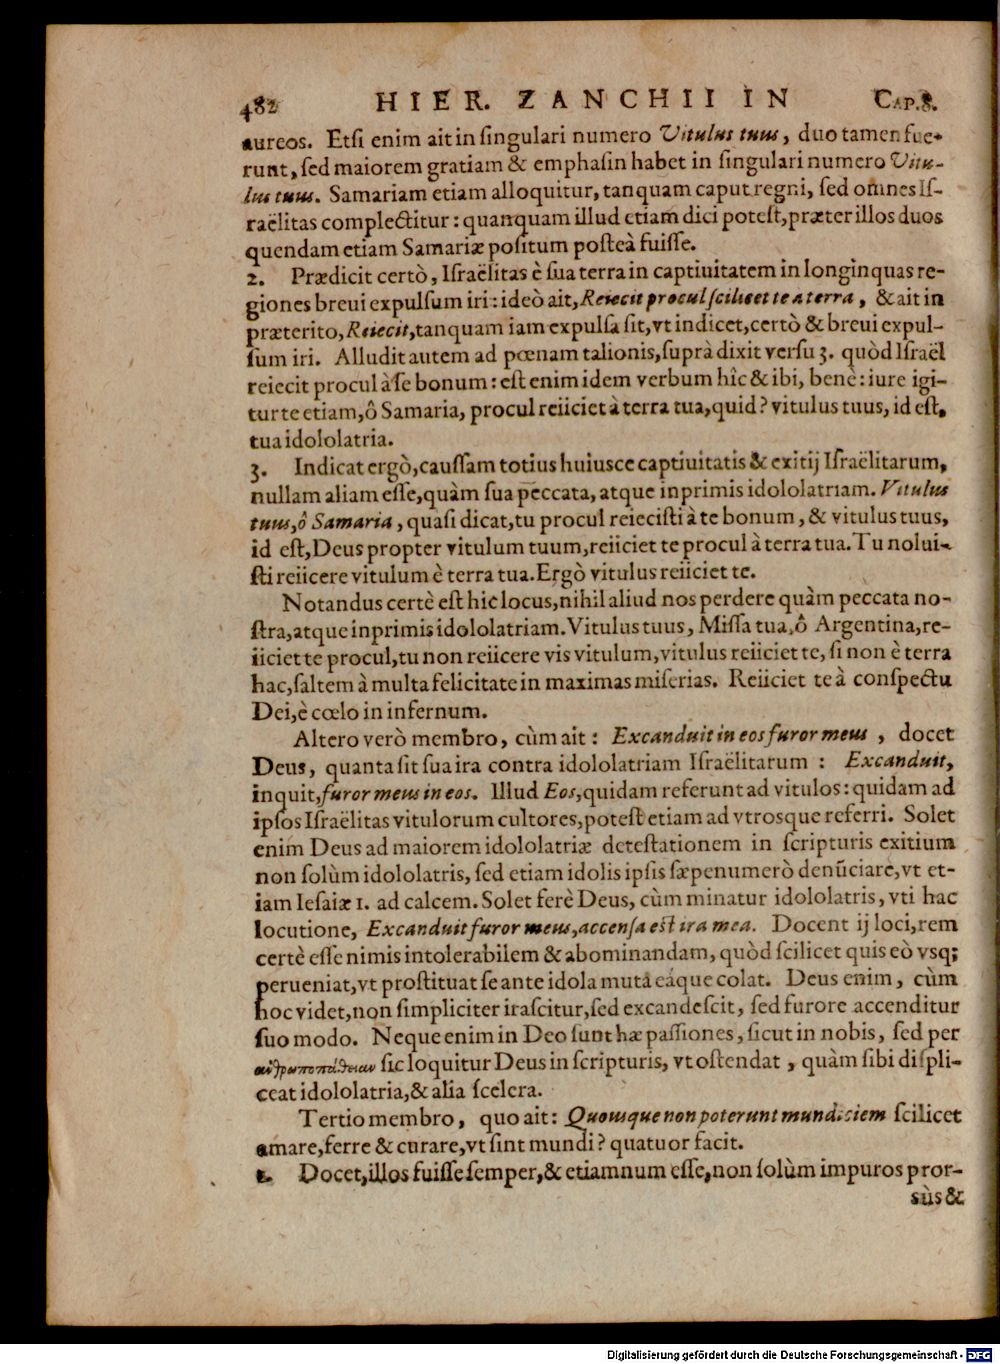 482 HIER. ZANCHII IN CAP.8.
aureos. Etſi enim ait in ſingulari numero Vitulus tuus, duo tamen fue-
runt, ſed maiorem gratiam & emphaſin habet in ſingulari numero Vitu-
lus tuus. Samariam etiam alloquitur, tanquam caput regni, ſed omnes Iſ-
raëlitas complectitur: quanquam illud etiam dici poteſt, præter illos duos
quendam etiam Samariæ poſitum poſteà fuiſſe.
2. Prædicit certò, Iſraëlitas è ſua terra in captiuitatem in longinquas re-
giones breui expulſum iri: ideò ait, Reiecit procul ſcilicet te a terra, & ait in
præterito, Reiecit, tanquam iam expulſa ſit, vt indicet, certò & breui expul-
ſum iri. Alludit autem ad pœnam talionis, ſuprà dixit verſu 3. quòd Iſraël
reiecit procul à ſe bonum: eſt enim idem verbum hîc & ibi, benè: iure igi-
tur te etiam, ô Samaria, procul reiiciet à terra tua, quid? vitulus tuus, id eſt,
tua idololatria.
3. Indicat ergò, cauſſam totius huiusce captiuitatis & exitij Iſraëlitarum,
nullam aliam eſſe, quàm ſua peccata, atque inprimis idololatriam. Vitulus
tuus, ô Samaria, quaſi dicat, tu procul reieciſti à te bonum, & vitulus tuus,
id eſt, Deus propter vitulum tuum, reiiciet te procul à terra tua. Tu nolui-
ſti reiicere vitulum è terra tua. Ergò vitulus reiiciet te.
Notandus certè eſt hic locus, nihil aliud nos perdere quàm peccata no-
ſtra, atque inprimis idololatriam. Vitulus tuus, Miſſa tua, ô Argentina, re-
iiciet te procul, tu non reiicere vis vitulum, vitulus reiiciet te, ſi non è terra
hac, ſaltem à multa felicitate in maximas miſerias. Reiiciet te à conſpectu
Dei, è cœlo in infernum.
Altero verò membro, cùm ait: Excanduit in eos furor meus, docet
Deus, quanta ſit ſua ira contra idololatriam Iſraëlitarum: Excanduit,
inquit, furor meus in eos. Illud Eos, quidam referunt ad vitulos: quidam ad
ipſos Iſraëlitas vitulorum cultores, poteſt etiam ad vtrosque referri. Solet
enim Deus ad maiorem idololatriæ deteſtationem in ſcripturis exitium
non ſolùm idololatris, ſed etiam idolis ipſis ſæpenumerò denũciare, vt et-
iam Ieſaiæ 1. ad calcem. Solet ferè Deus, cùm minatur idololatris, vti hac
locutione, Excanduit furor meus, accenſa eſt ira mea. Docent ij loci, rem
certè eſſe nimis intolerabilem & abominandam, quòd ſcilicet quis eò vsq;
perueniat, vt proſtituat ſe ante idola muta eáque colat. Deus enim, cùm
hoc videt, non ſimpliciter iraſcitur, ſed excandeſcit, ſed furore accenditur
ſuo modo. Neque enim in Deo ſunt hæ paſſiones, ſicut in nobis, ſed per
ἀνθρωποπάθειαν ſic loquitur Deus in ſcripturis, vt oſtendat, quàm ſibi diſpli-
ceat idololatria, & alia ſcelera.
Tertio membro, quo ait: Quousque non poterunt mundiciem ſcilicet
amare, ferre & curare, vt ſint mundi? quatuor facit.
1. Docet, illos fuiſſe ſemper, & etiamnum eſſe, non ſolùm impuros pror-
sùs &
Digitalisierung gefördert durch die Deutsche Forschungsgemeinschaft - DFG